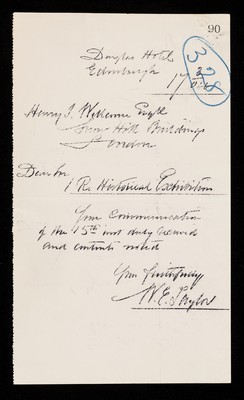 90
328
Douglas Hotel
Edinburgh
17
Henry S. Wellcome Esqr
Snow Hill Buildings
London
Dear Sir
Re Historical Exhibition
Your Communication
of the 15th inst duly received
and contents noted
Yours faithfully
W. E. Taylor